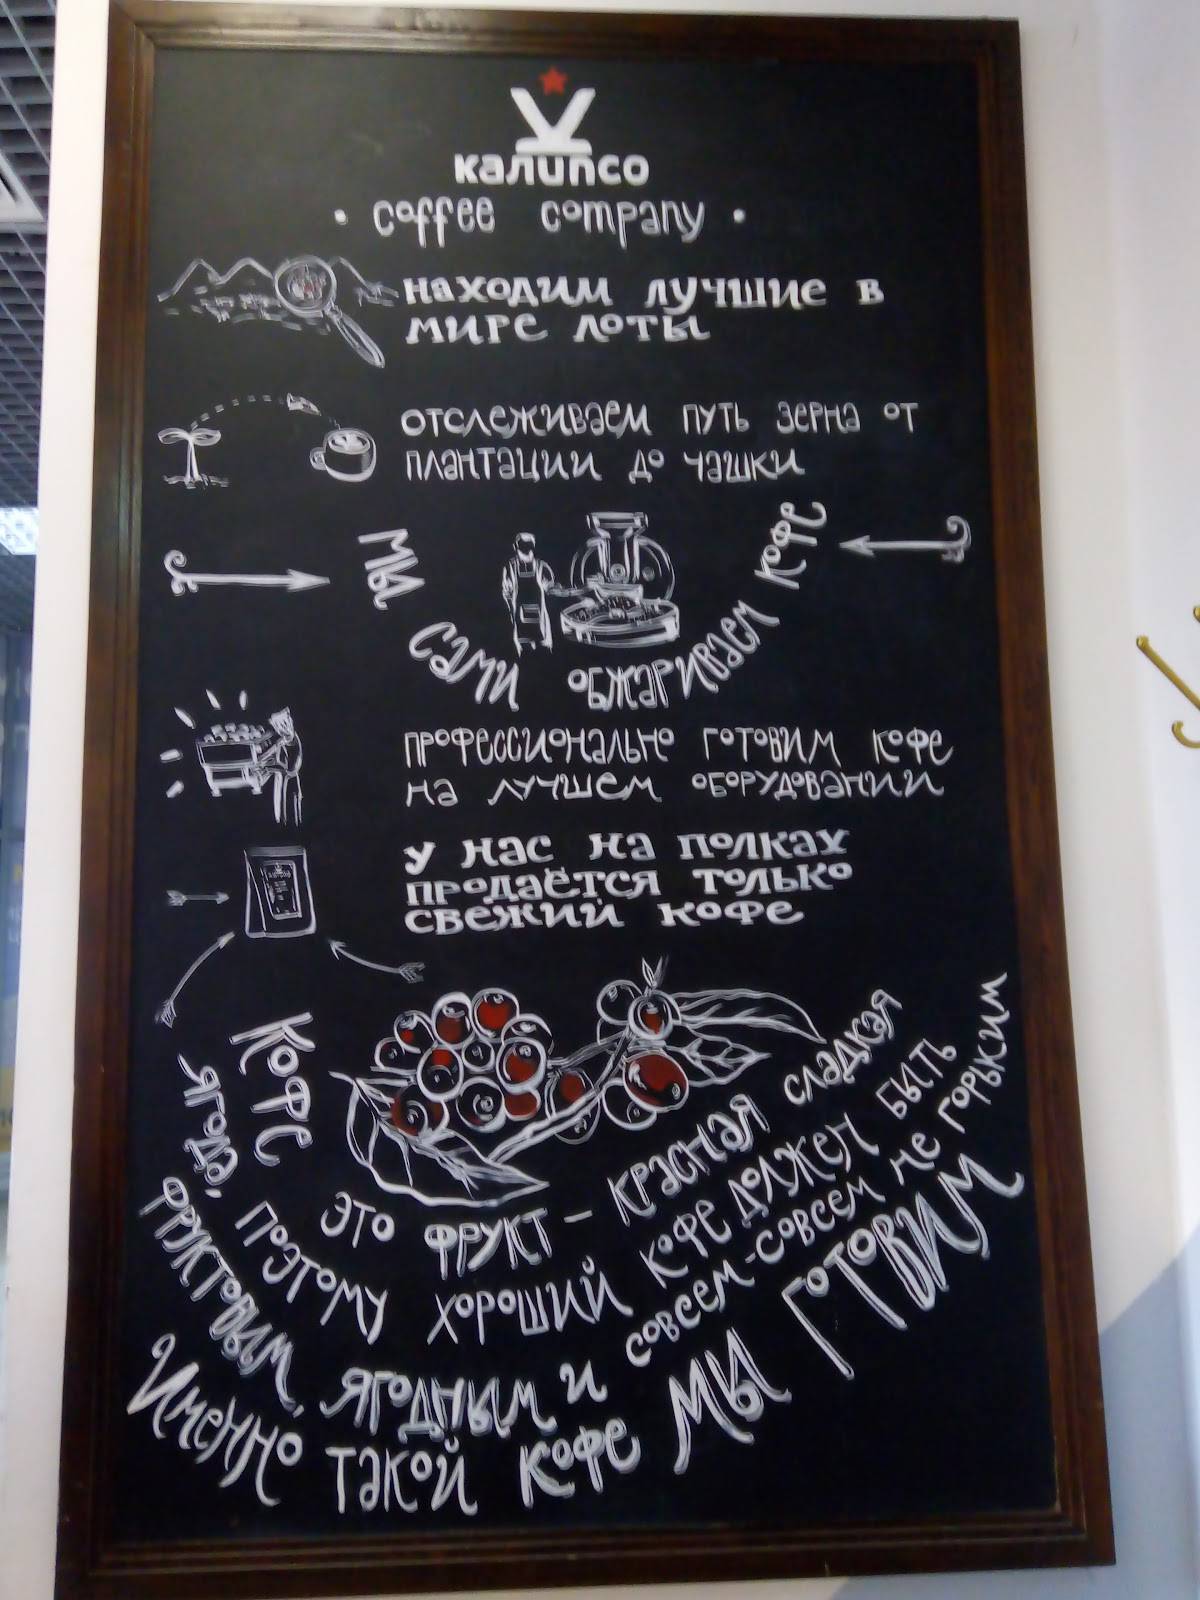 калипсо
• coffee company •
находим лучшие в
мире лоты
отслеживаем путь зерна от
плантации до чашки
Мы сами обжариваем кофе
профессионально готовим кофе
на лучшем оборудовании
у нас на полках
продаётся только
свежий кофе
Кофе это фрукт – красная сладкая
ягода, поэтому хороший кофе должен быть
фруктовым, ягодным и совсем-совсем не горьким
Именно такой кофе мы готовим